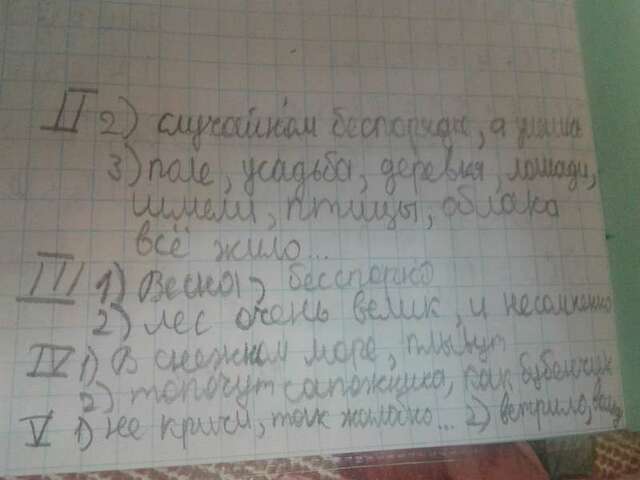 II 2) случайном беспорядке, а улица
3) поле, усадьба, деревня, лошади,
шмели, птицы, облака
всё жило...
III 1) Весна, бесспорно
2) лес очень велик, и несомненно
IV 1) В снежном море, плывут
2) топочут сапожища, как бубенчик
V 1) не кричи, так жалобно... 2) ветрило,